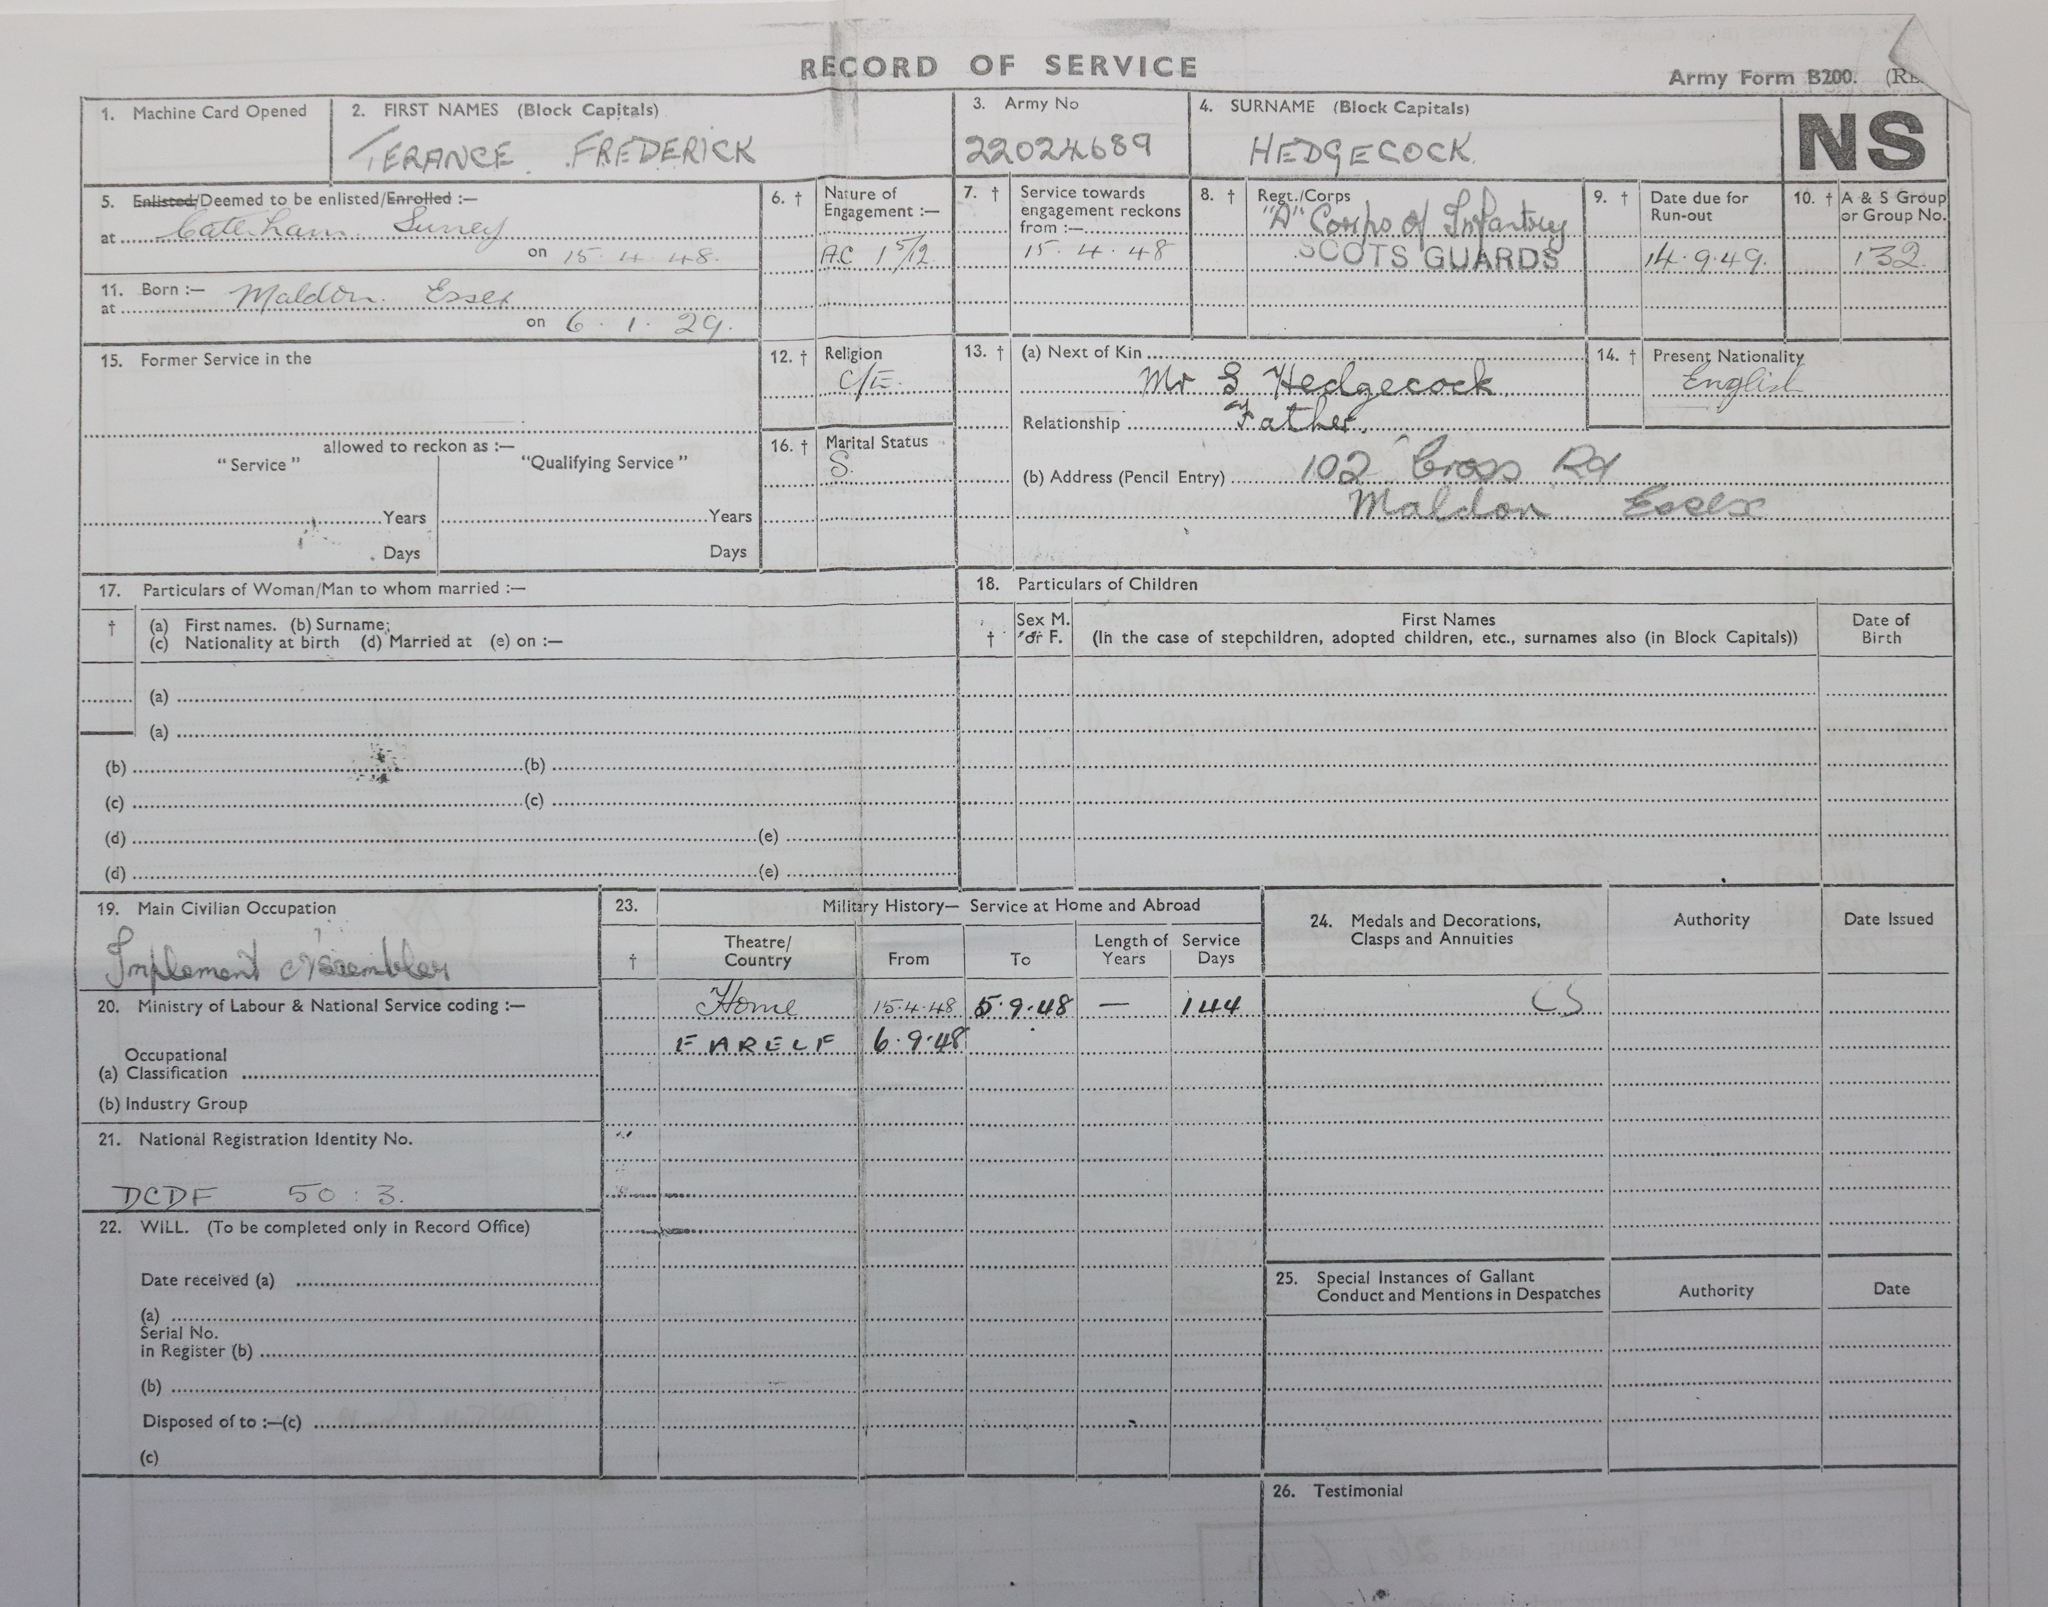 RECORD OF SERVICE
Army Form B200.
1. Machine Card Opened
2. FIRST NAMES (Block Capitals)
TERANCE FREDERICK
3. Army No
22024689
4. SURNAME (Block Capitals)
HEDGECOCK
NS
5. Enlisted/Deemed to be enlisted/Enrolled :—
at Caterham Surrey
on 15.4.48.
6. † Nature of
Engagement :—
AC 1 5/12
7. † Service towards
engagement reckons
from :—
15.4.48
8. † Regt./Corps
"A" Corps of Infantry
SCOTS GUARDS
9. † Date due for
Run-out
14.9.49.
10. † A & S Group
or Group No.
132
11. Born :—
at Maldon. Essex
on 6.1.29.
12. † Religion
C/E.
13. † (a) Next of Kin
Mr S Hedgecock
Relationship Father.
(b) Address (Pencil Entry) 102 Cross Rd
Maldon Essex
14. † Present Nationality
English
15. Former Service in the
allowed to reckon as :—
"Service" "Qualifying Service"
Years Years
Days Days
16. † Marital Status
S.
17. Particulars of Woman/Man to whom married :—
† (a) First names. (b) Surname;
(c) Nationality at birth (d) Married at (e) on :—
(a)
(a)
(b) (b)
(c) (c)
(d) (e)
(d) (e)
18. Particulars of Children
† Sex M.
or F.
First Names
(In the case of stepchildren, adopted children, etc., surnames also (in Block Capitals))
Date of
Birth
19. Main Civilian Occupation
Implement Assembler
20. Ministry of Labour & National Service coding :—
Occupational
(a) Classification
(b) Industry Group
21. National Registration Identity No.
DCDF 50 : 3.
22. WILL. (To be completed only in Record Office)
Date received (a)
(a)
Serial No.
in Register (b)
(b)
Disposed of to :—(c)
(c)
23. Military History— Service at Home and Abroad
† Theatre/
Country
From To
Length of Service
Years Days
Home 15.4.48 5.9.48 — 144
FARELF 6.9.48
24. Medals and Decorations,
Clasps and Annuities
Authority Date Issued
CS
25. Special Instances of Gallant
Conduct and Mentions in Despatches
Authority Date
26. Testimonial